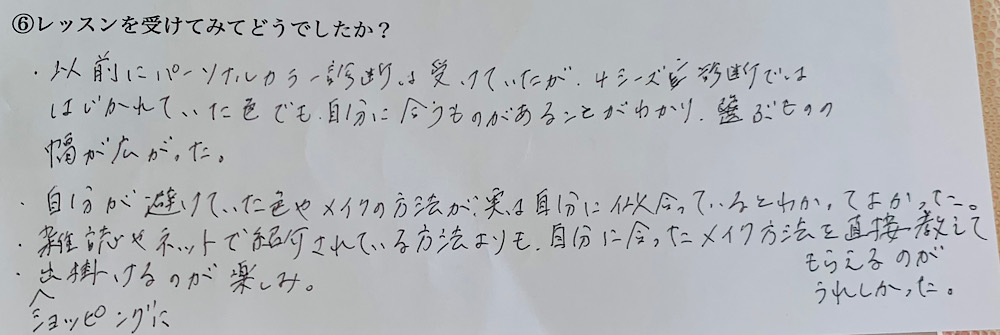 ⑥レッスンを受けてみてどうでしたか？
・以前にパーソナルカラー診断は受けていたが、4シーズン診断では
はじかれていた色でも、自分に合うものがあることがわかり、選ぶものの
幅が広がった。
・自分が避けていた色やメイクの方法が、実は自分に似合っているとわかってよかった。
・雑誌やネットで紹介されている方法よりも、自分に合ったメイク方法を直接教えて
もらえるのが
うれしかった。
・出掛けるのが楽しみ。
ショッピングに